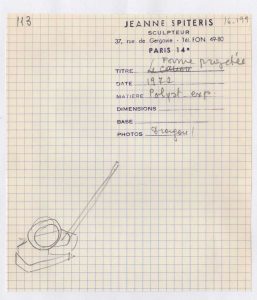 113
16.199
JEANNE SPITERIS
SCULPTEUR
37, rue de Gergovie - Tél. FON. 49-80
PARIS 14e
Forme projetée
TITRE Le canon
DATE 1972
MATIÈRE Polyst. exp.
DIMENSIONS
BASE
PHOTOS